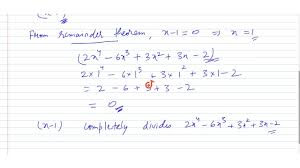 From remainder theorem, x-1=0 ⇒ x=1
(2x⁴ - 6x³ + 3x² + 3x - 2)
2×1⁴ - 6×1³ + 3×1² + 3×1 - 2
= 2 - 6 + 3 + 3 - 2
= 0
(x-1) completely divides 2x⁴ - 6x³ + 3x² + 3x - 2